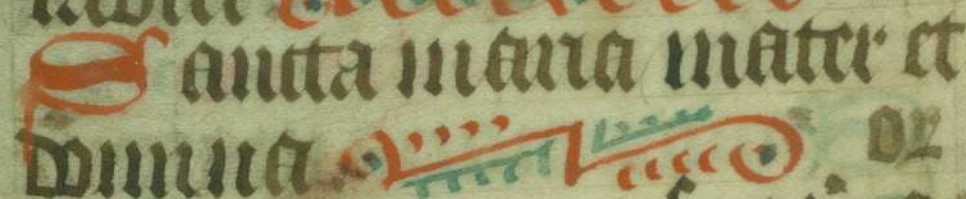 Sancta maria mater et
domina. or